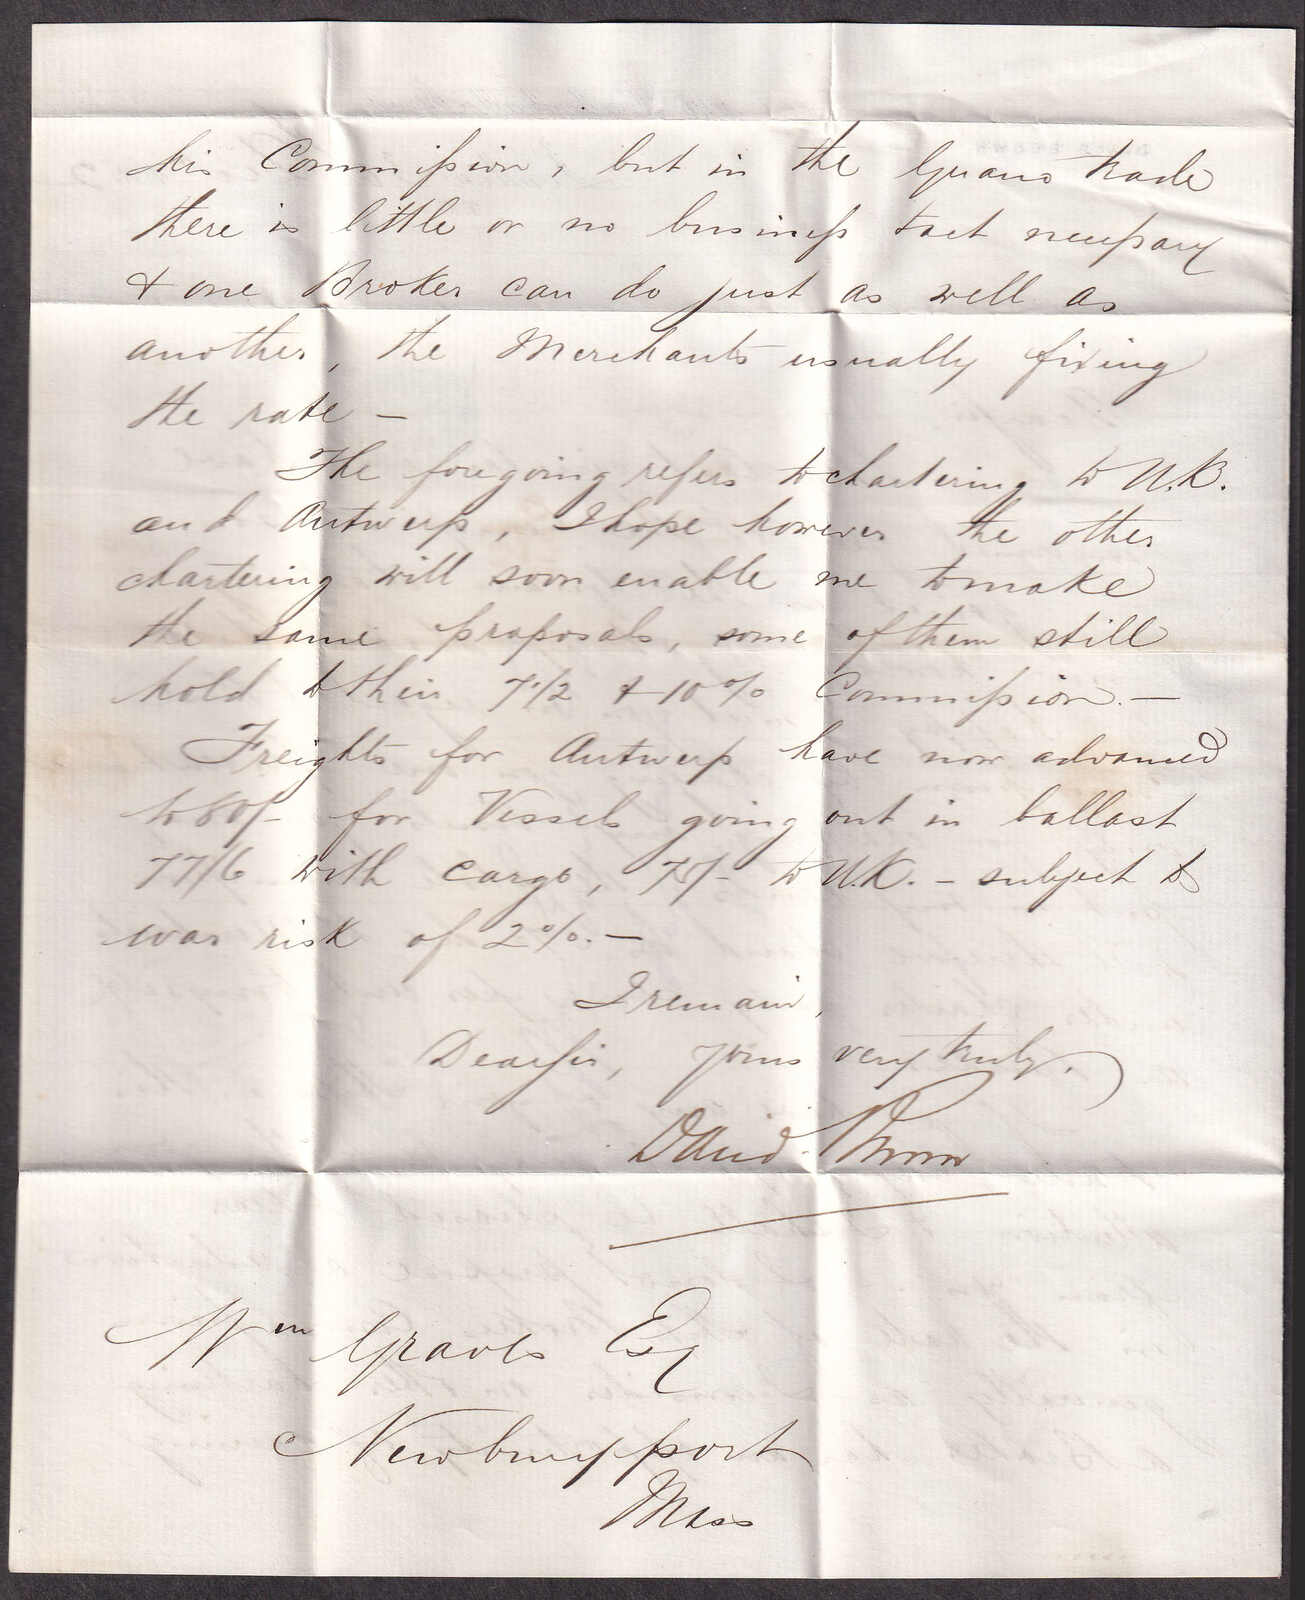 his Commission, but in the Guano trade
there is little or no business tact necessary
& one Broker can do just as well as
another, the Merchants usually fixing
the rate —
The foregoing refers to chartering to U.K.
and Antwerp, I hope however the other
chartering will soon enable me to make
the same proposals, some of them still
hold to their 7 1/2 & 10 % Commission. —
Freights for Antwerp have now advanced
to 80/- for Vessels going out in ballast
77/6 with cargo, 75/- to U.K. — subject to
war risk of 2 %. —
I remain,
Dear Sir, yours very truly,
David
Wm Graves Esq
Newburyport
Mass